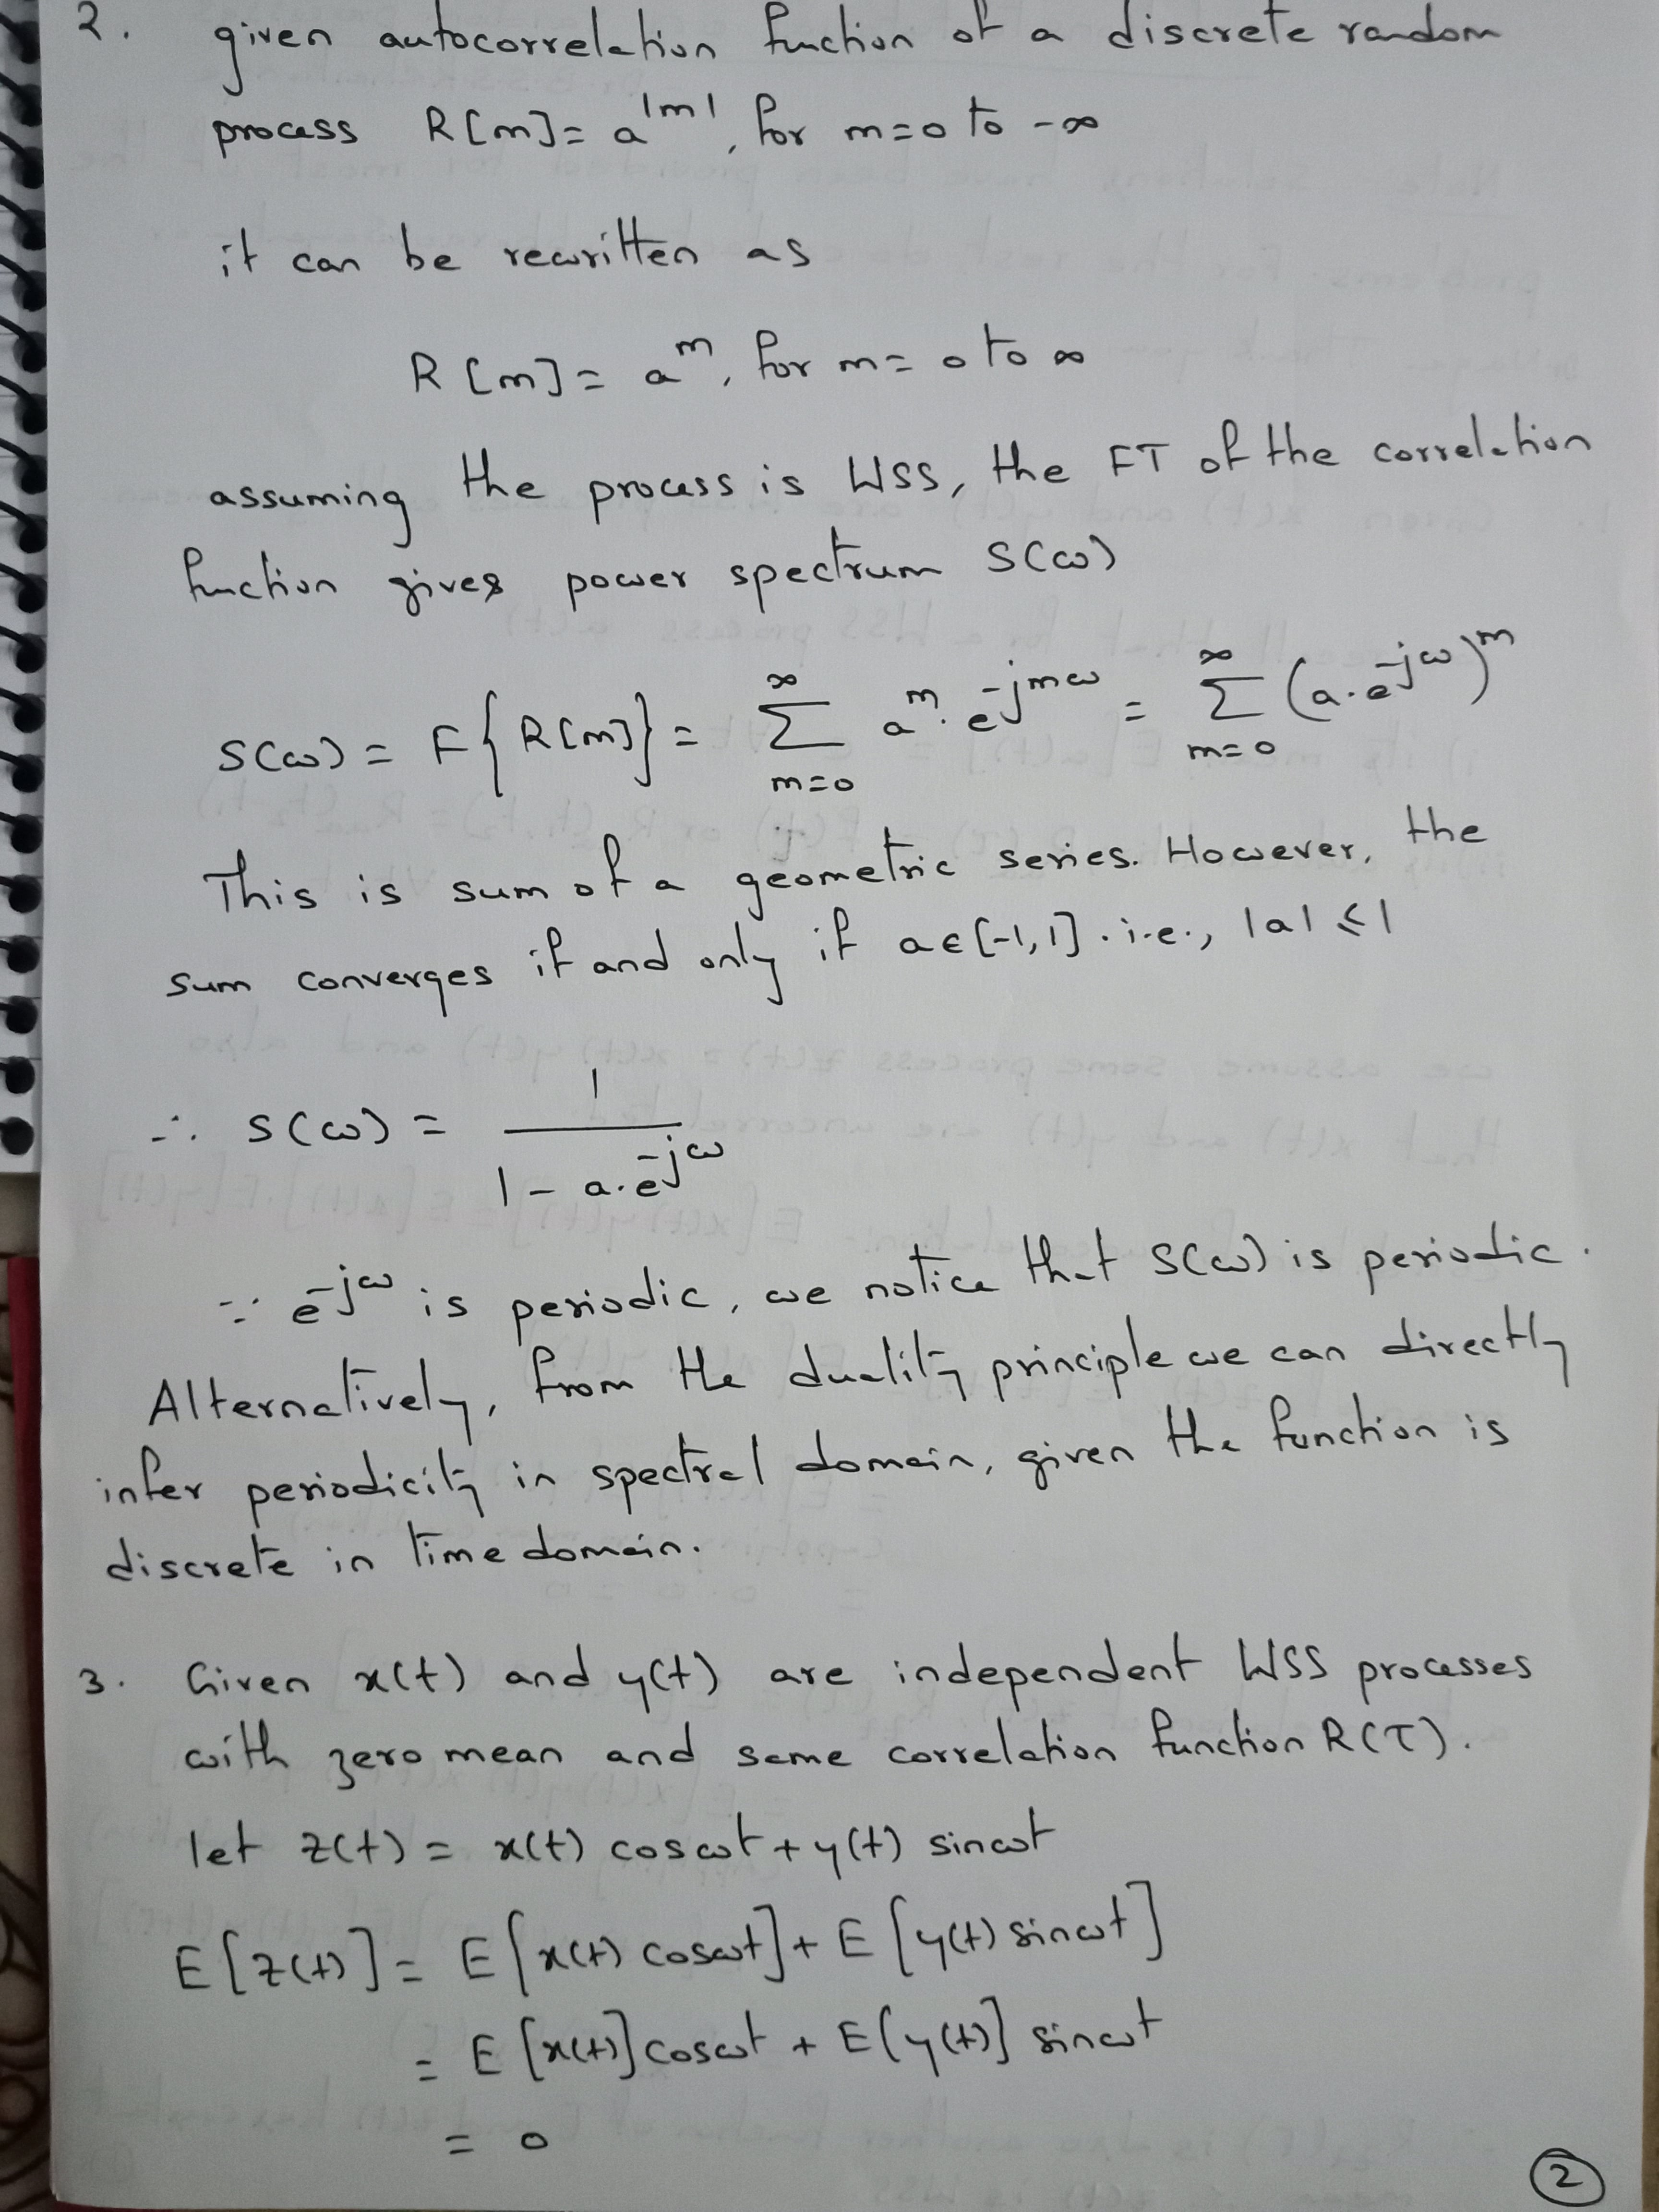 2. given autocorrelation function of a discrete random
process R[m] = a^|m|, for m=0 to -∞
it can be rewritten as
R[m] = a^m, for m = 0 to ∞
assuming the process is WSS, the FT of the correlation
function gives power spectrum S(ω)
S(ω) = F{R[m]} = ∑_{m=0}^{∞} a^m. e^{-jmω} = ∑_{m=0}^{∞} (a.e^{-jω})^m
This is sum of a geometric series. However, the
sum converges if and only if a∈[-1,1]. i.e., |a| ≤ 1
∴ S(ω) = 1 / (1 - a.e^{-jω})
∵ e^{-jω} is periodic, we notice that S(ω) is periodic.
Alternatively, from the duality principle we can directly
infer periodicity in spectral domain, given the function is
discrete in time domain.
3. Given x(t) and y(t) are independent WSS processes
with zero mean and same correlation function R(τ).
let z(t) = x(t) cosωt + y(t) sinωt
E[z(t)] = E[x(t) cosωt] + E[y(t) sinωt]
= E[x(t)] cosωt + E[y(t)] sinωt
= 0
2